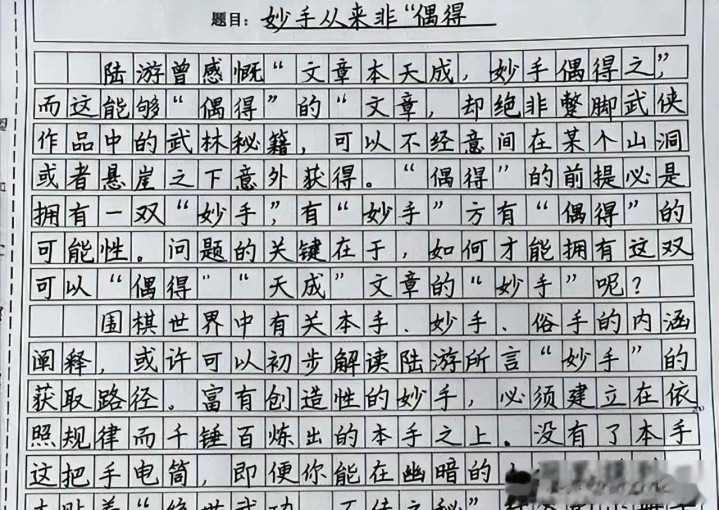 题目：妙手从来非“偶得
陆游曾感慨“文章本天成，妙手偶得之，”
而这能够“偶得”的“文章，却绝非蹩脚武侠
作品中的武林秘籍，可以不经意间在某个山洞
或者悬崖之下意外获得。“偶得”的前提必是
拥有一双“妙手”，有“妙手”方有“偶得”的
可能性。问题的关键在于，如何才能拥有这双
可以“偶得”“天成”文章的“妙手”呢？
围棋世界中有关本手、妙手、俗手的内涵
阐释，或许可以初步解读陆游所言“妙手”的
获取路径。富有创造性的妙手，必须建立在依
照规律而千锤百炼出的本手之上。没有了本手
这把手电筒，即便你能在幽暗的